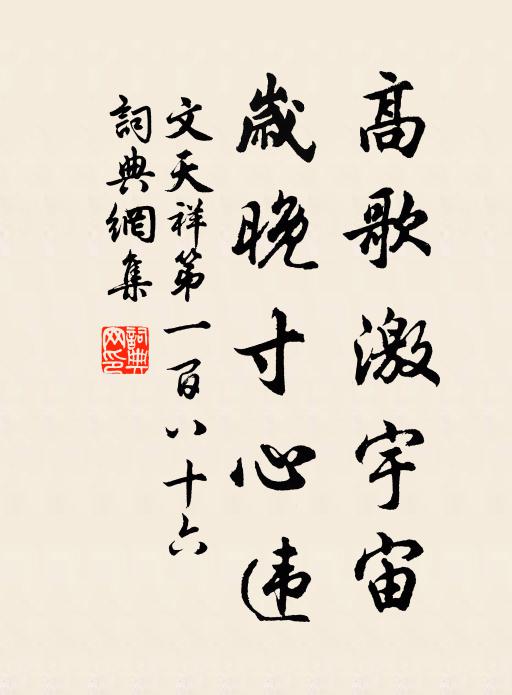 高歌激宇宙
歲晚寸心违
文天祥第一百八十六
詞典網集
詞典網印